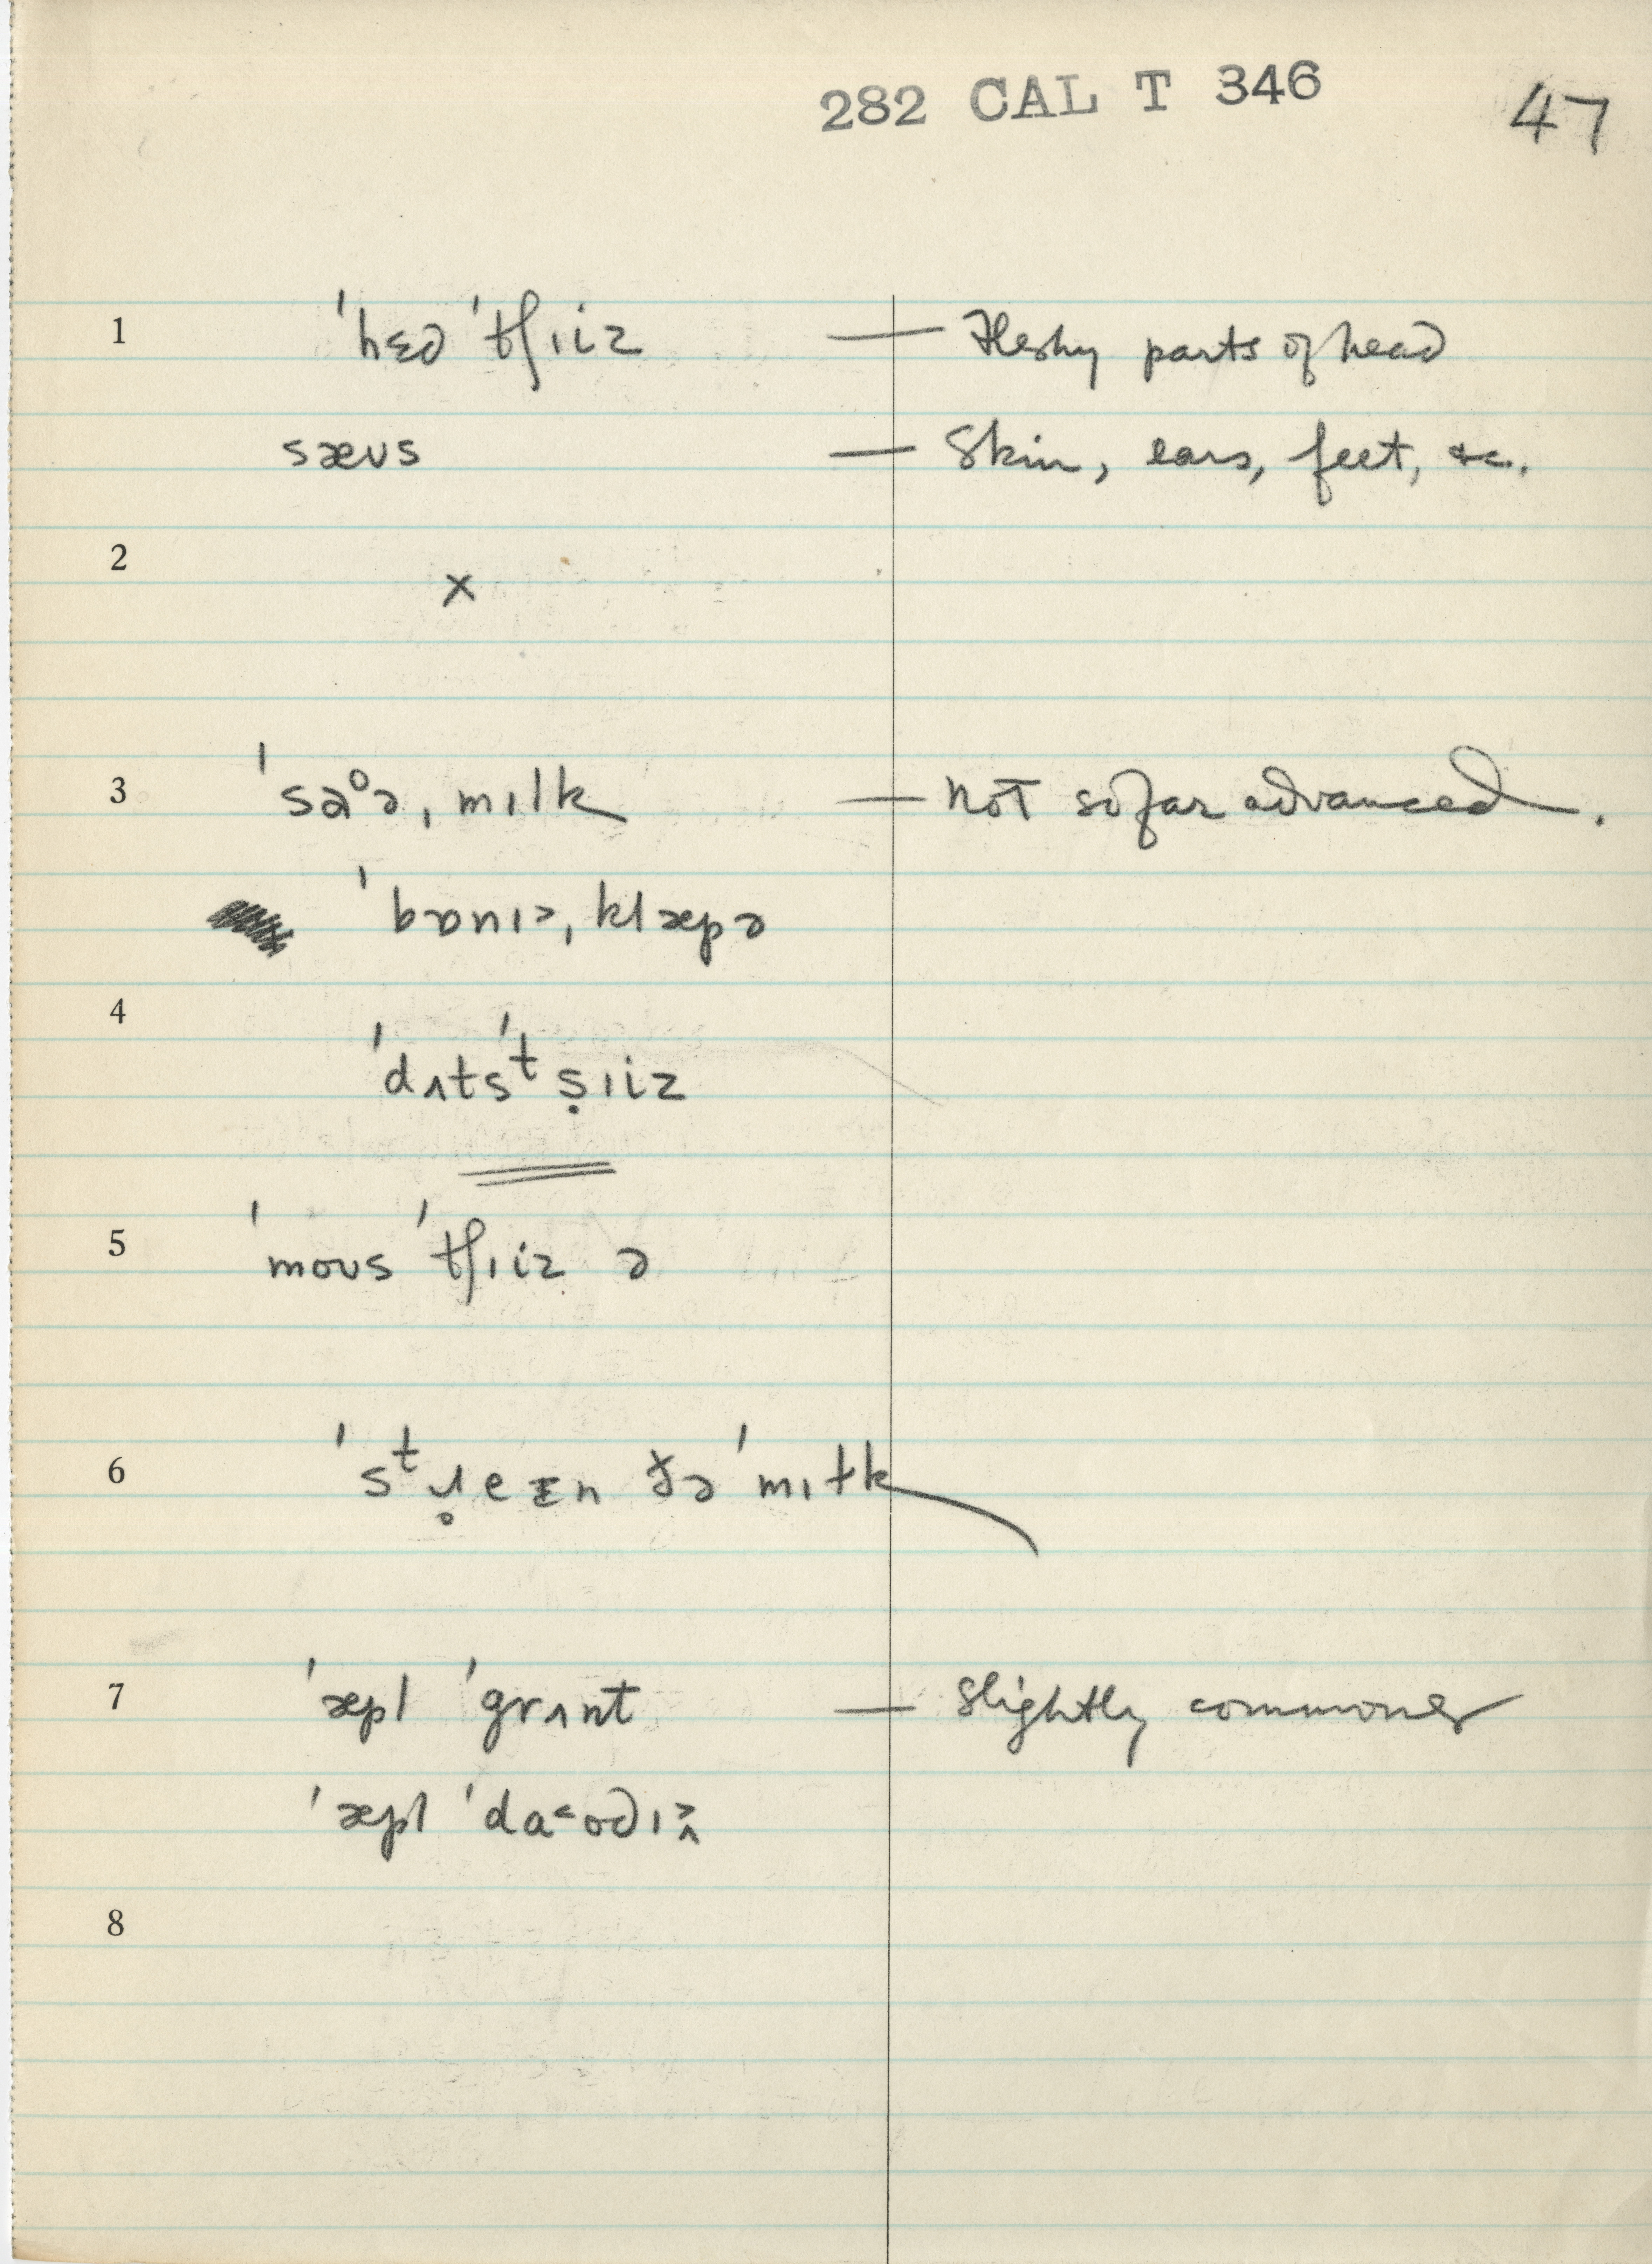 282 CAL T 346 47
1 ˈhɛd ˈtʃɪiz — Fleshy parts of head
sæʊs — Skin, ears, feet, &c.
2 ×
3 ˈsaᵒə, mɪlk — not so far advanced.
ˈbɒnɪ˃, klæpə
4 ˈdʌtsˈᵗṣɪiz
5 ˈmoʊs ˈtʃɪiz ə
6 mɪɫk
7 ˈæpl ˈgrʌnt — Slightly commoner
ˈæpl
8